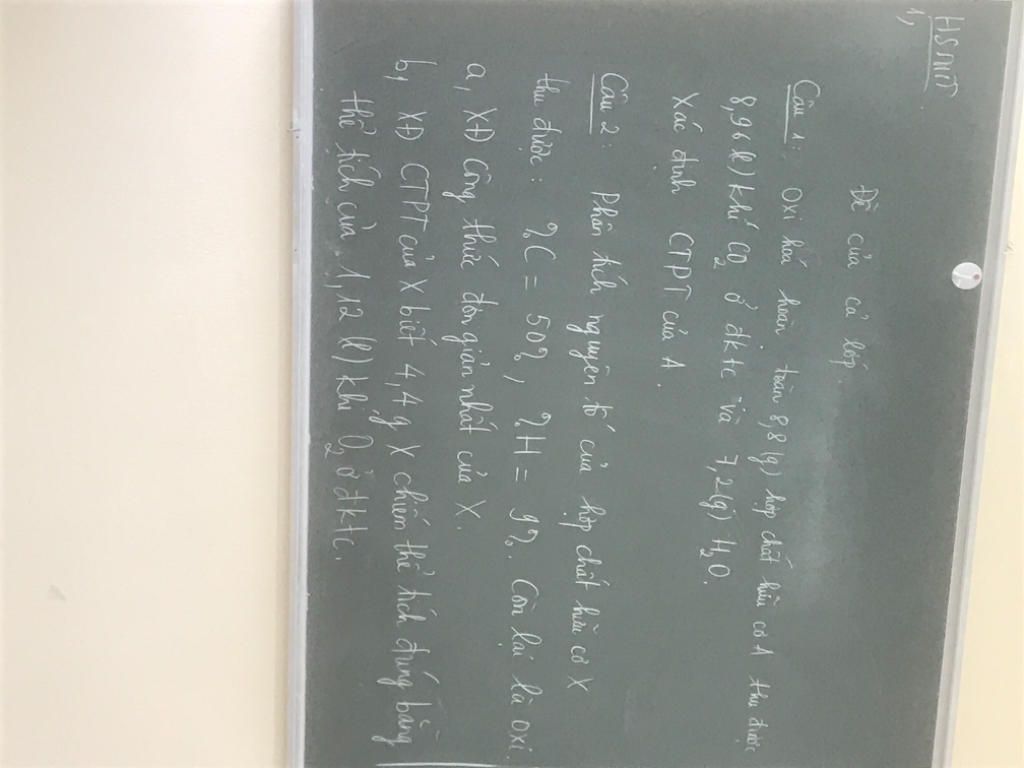 HSTNT
1,
Đề của cả lớp.
Câu 1: Oxi hoá hoàn toàn 8,8(g) hợp chất hữu cơ A thu được
8,96(l) khí CO2 ở đktc và 7,2(g) H2O.
Xác định CTPT của A.
Câu 2: Phân tích nguyên tố của hợp chất hữu cơ X
thu được: %C = 50%, %H = 9%. Còn lại là oxi
a, XĐ Công thức đơn giản nhất của X.
b, XĐ CTPT của X biết 4,4g X chiếm thể tích đúng bằng
thể tích của 1,12 (l) khí O2 ở đktc.